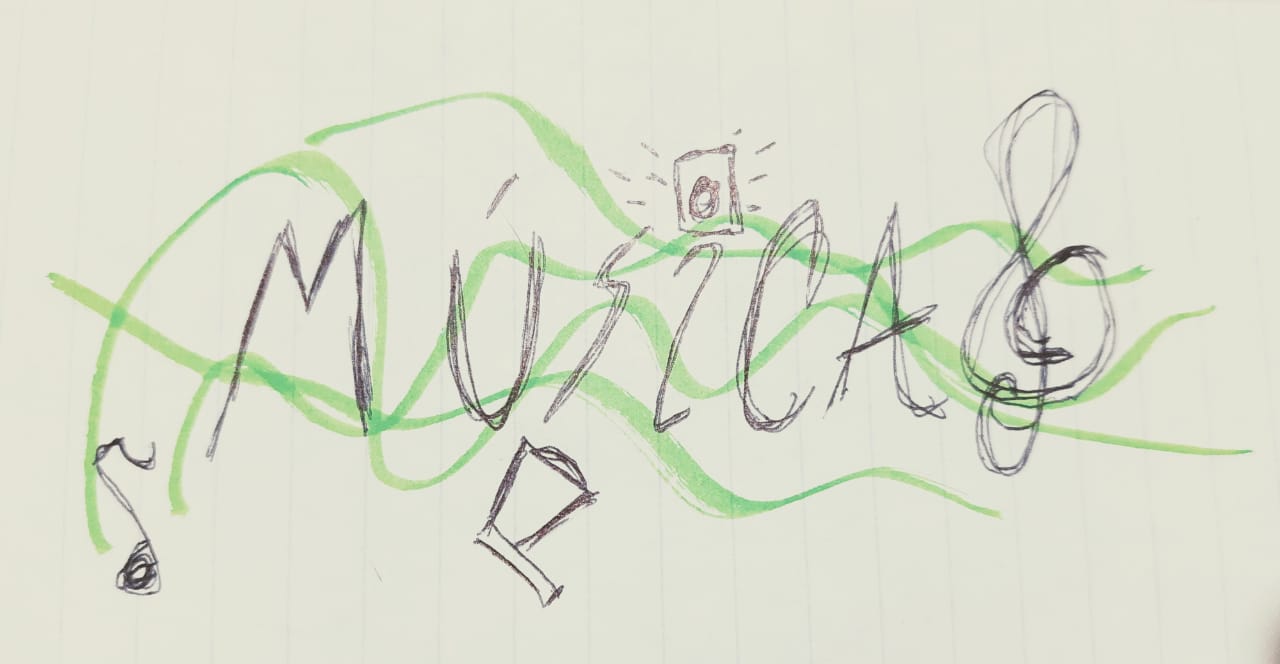 MÚSICA